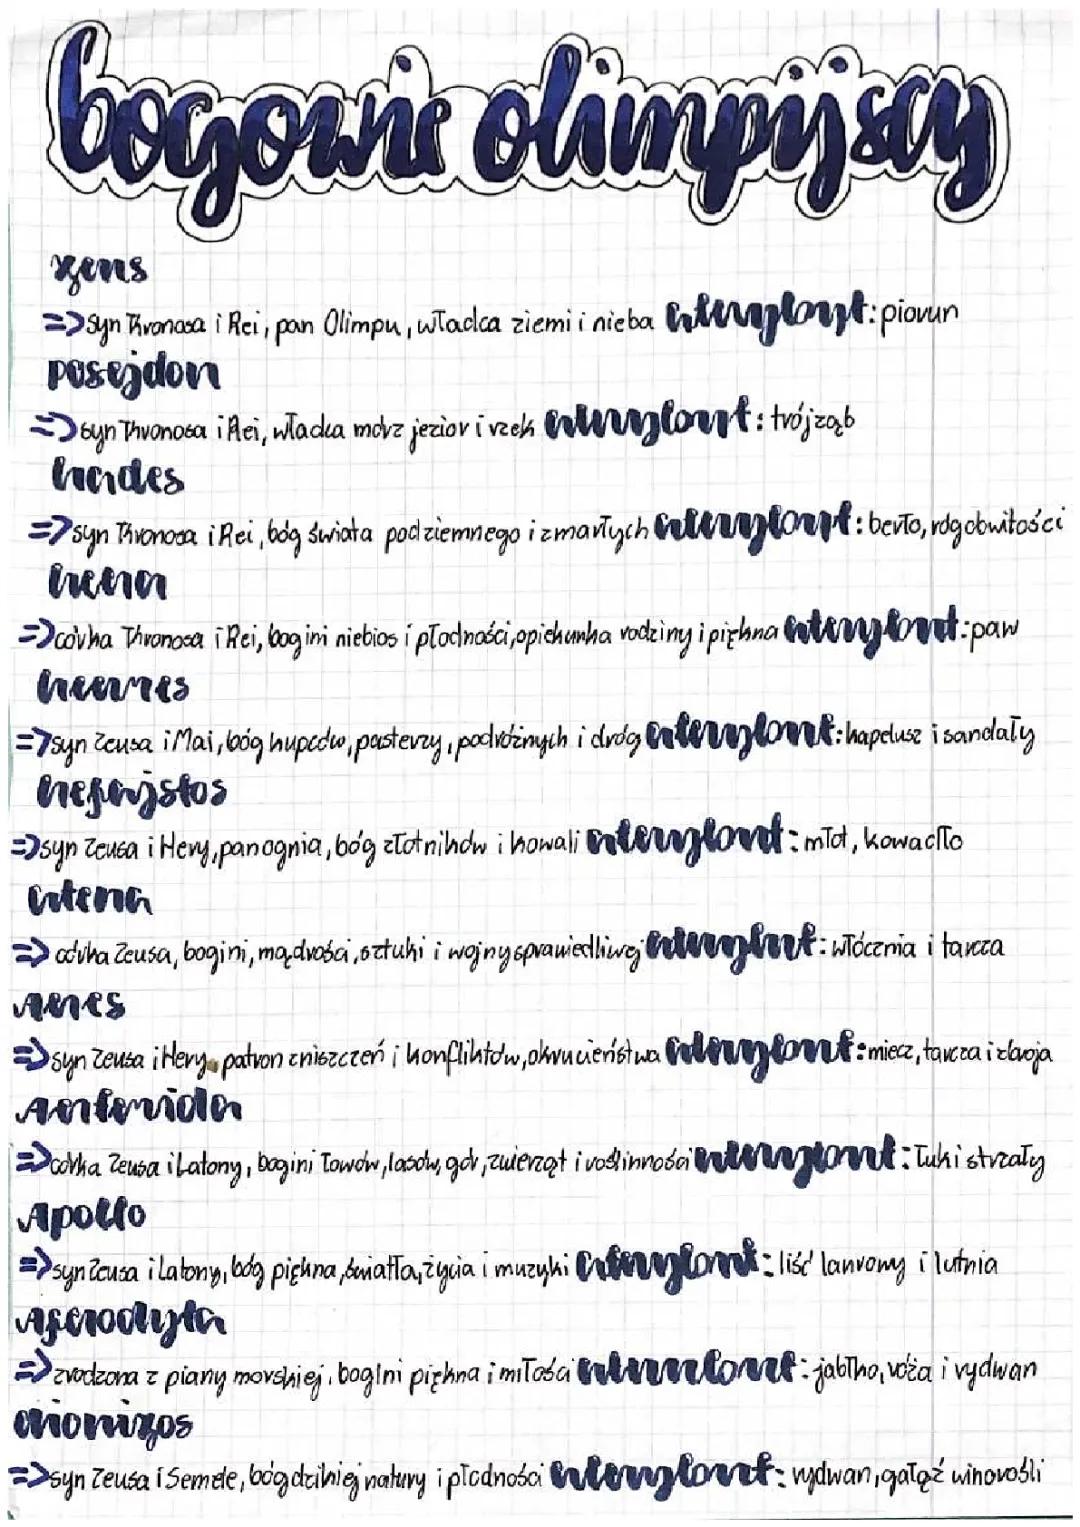 bogowie olimpijscy
zeus
=> syn Kronosa i Rei, pan Olimpu, władca ziemi i nieba atrybut: piorun
posejdon
=> syn Kronosa i Rei, władca mórz jezior i rzek atrybut: trójząb
hades
=> syn Kronosa i Rei, bóg świata podziemnego i zmarłych atrybut: berło, róg obwitości
hera
=> córka Kronosa i Rei, bogini niebios i płodności, opiekunka rodziny i piękna atrybut: paw
hermes
=> syn Zeusa i Mai, bóg kupców, pasterzy, podróżnych i dróg atrybut: kapelusz i sandały
hefajstos
=> syn Zeusa i Hery, pan ognia, bóg złotników i kowali atrybut: młot, kowadło
atena
=> córka Zeusa, bogini, mądrości, sztuki i wojny sprawiedliwej atrybut: włócznia i tarcza
Ares
=> syn Zeusa i Hery, patron zniszczeń i konfliktów, okrucieństwa atrybut: miecz, tarcza i zbroja
Artemida
=> córka Zeusa i Latony, bogini łowów, lasów, gór, zwierząt i roślinności atrybut: łuk i strzały
Apollo
=> syn Zeusa i Latony, bóg piękna, światła, życia i muzyki atrybut: liść laurowy i lutnia
Afrodyta
=> zrodzona z piany morskiej, bogini piękna i miłości atrybut: jabłko, róża i rydwan
dionizos
=> syn Zeusa i Semele, bóg dzikiej natury i płodności atrybut: rydwan, gałąź winorośli